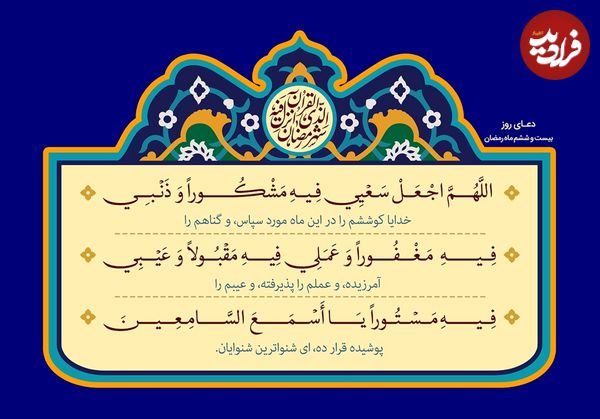 فرادید
دعای روز
بیست و ششم ماه رمضان
شهر رمضان الذی انزل فیه القرآن
اللَّهُمَّ اجْعَلْ سَعْیِی فِیهِ مَشْکُوراً وَ ذَنْبِی
خدایا کوششم را در این ماه مورد سپاس، و گناهم را
فِیهِ مَغْفُوراً وَ عَمَلِی فِیهِ مَقْبُولاً وَ عَیْبِی
آمرزیده، و عملم را پذیرفته، و عیبم را
فِیهِ مَسْتُوراً یَا أَسْمَعَ السَّامِعِینَ
پوشیده قرار ده، ای شنواترین شنوایان.